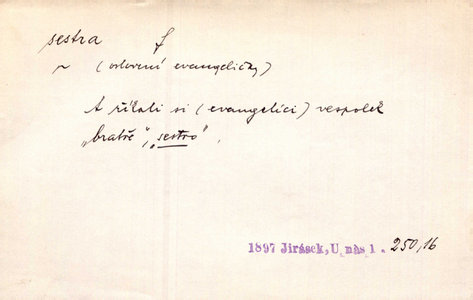 sestra f
~ (oslovení evangeličky)
A říkali si (evangelíci) vespolek
„bratře“, „sestro“.
1897 Jirásek, U nás 1. 250,16